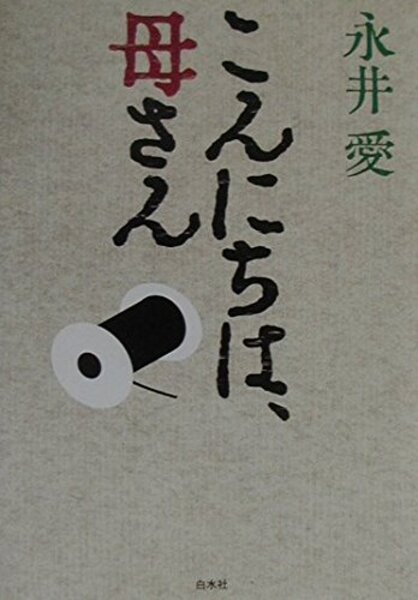 永井愛
こんにちは、
母さん
白水社